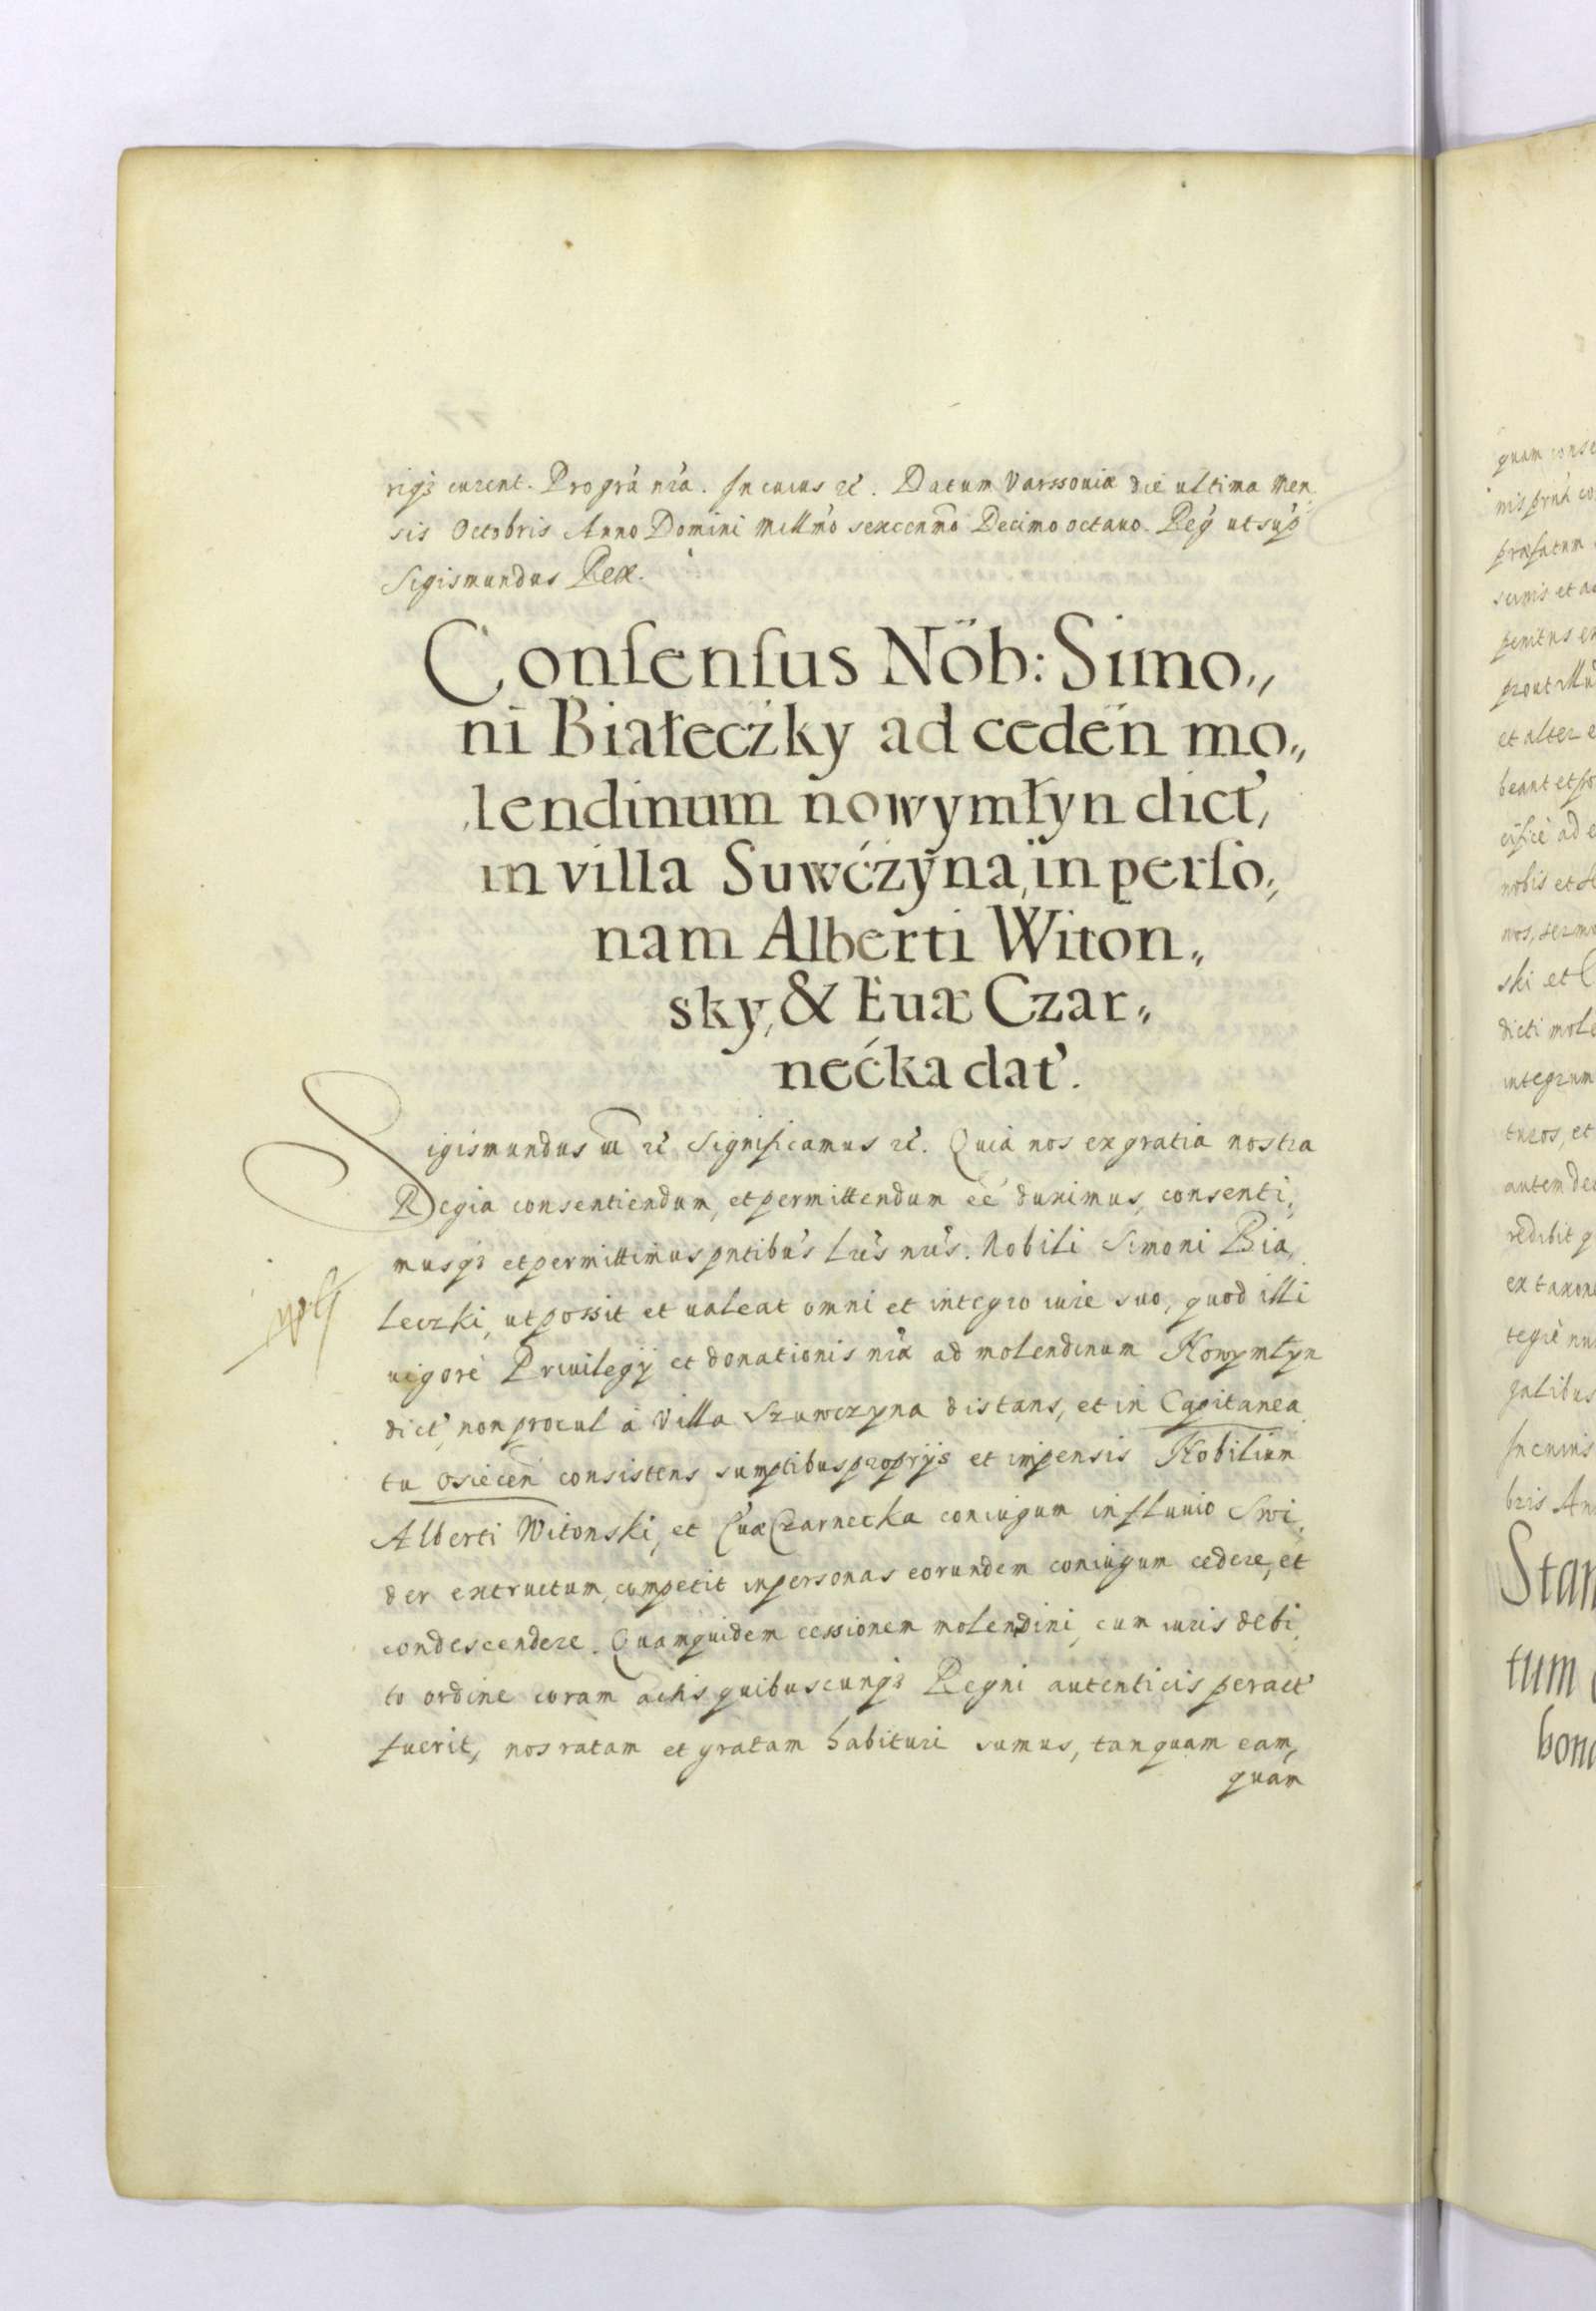 rigꝫ curent. Pro grã nrã. In cuius rẽ. Datum Varssouiæ die ultima Men
sis Octobris Anno Domini Millmo sexcenmo Decimo octauo. Reg ut sup
Sigismundus Rex.
Conſenſus Nob: Simo„
ni Białeczky ad ceden mo„
lendinum nowymłyn dict,
in villa Suwczyna, in perſo„
nam Alberti Witon„
sky, & Euæ Czar„
nećka dat.
Sigismundus rẽ Significamus rẽ. Quia nos ex gratia nostra
Regia consentiendum, et permittendum eẽ duximus, consenti,
musqꝫ et permittimus pntibus Lris nris. Nobili Simoni Bia,
leczki, ut possit et ualeat omni et integro iure suo, quod illi
uigore Priuilegij et donationis nræ ad molendinum Nowymłyn
dict, non procul à Villa Szuwczyna distans, et in Capitanea
tu Osiecen consistens sumptibus proprijs et impensis Nobilium
Alberti Witonski, et Euæ Czarnecka coniugum in fluuio Swi,
der extructum, competit in personas eorundem coniugum cedere, et
condescendere. Quam quidem cessionem molendini, cum iuris debi,
to ordine coram actis quibuscunqꝫ Regni autenticis peract
fuerit, nos ratam et gratam habituri sumus, tanquam eam,
quam
quam conse
præfatum
penitus ex
prout illud
et alter e
nobis et
ski et C
dicti mole
integrum
turos, et
autem de
redibit q
In cuius
bris An
Stan
tum
bona